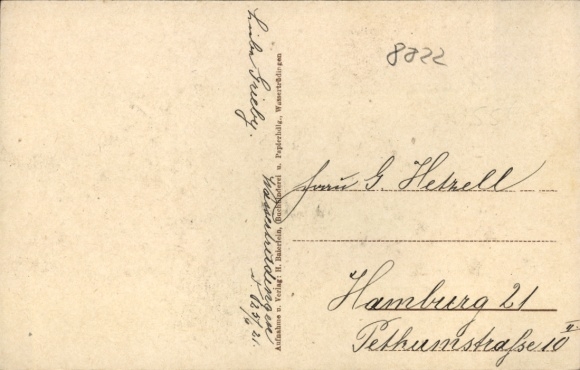 8822
Liebe Grieby.
Wassertrüdingen
Aufnahme u. Verlag: H. Baierlein, Buchbinderei u. Papierhdlg., Wassertrüdingen
Frau G. Hetzell
Hamburg 21
Pethumstraße 10 II.